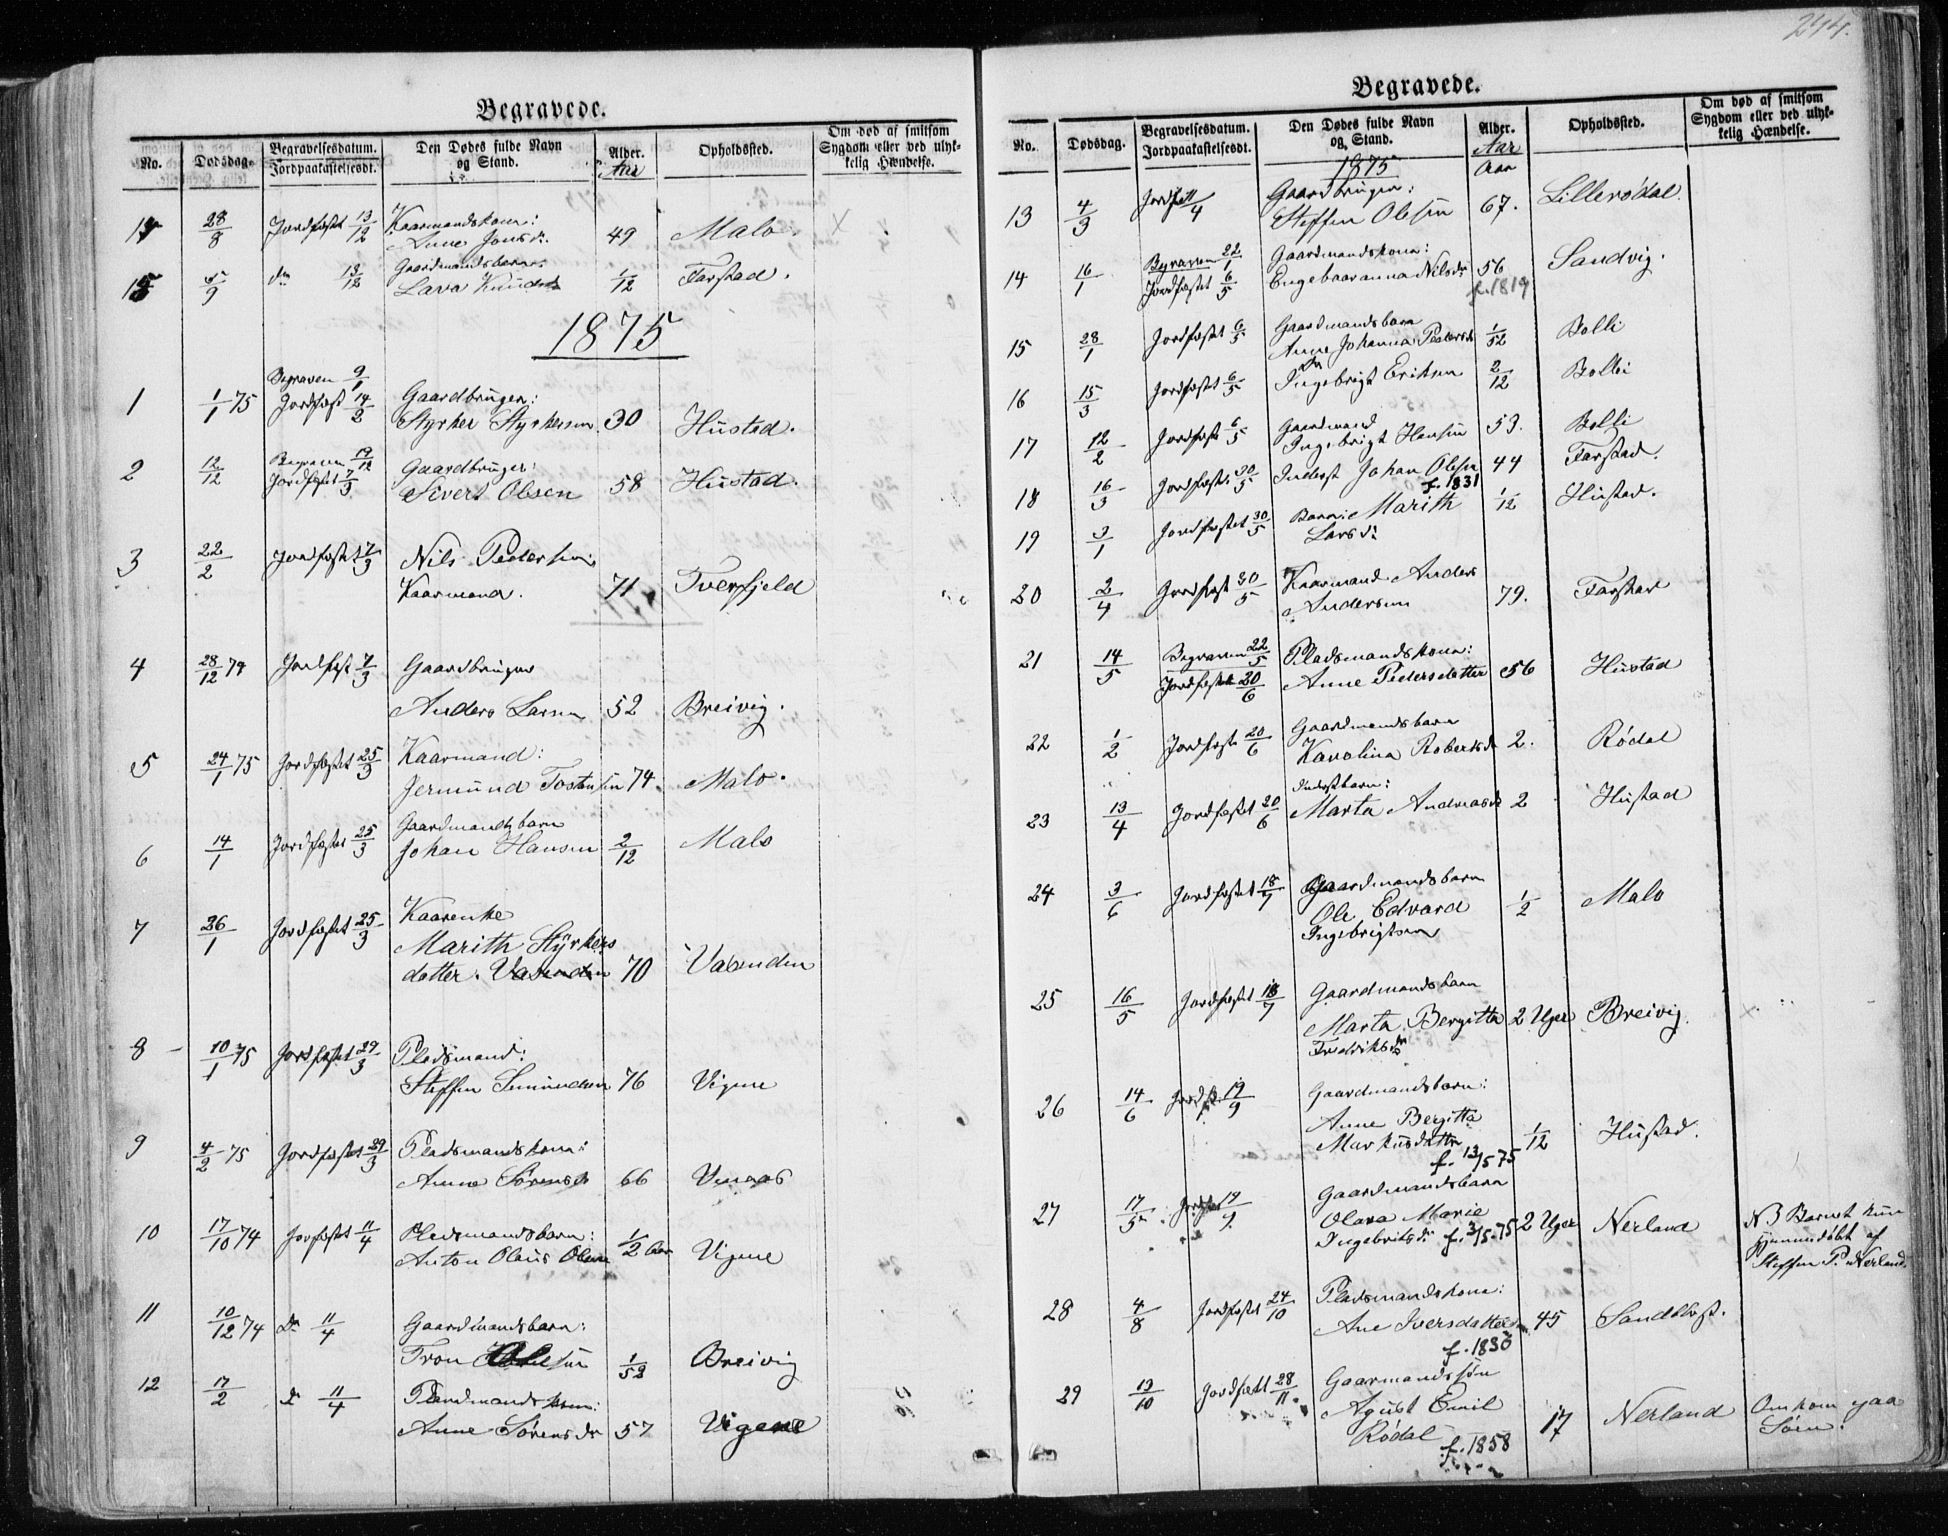 244.
Begravede.
No. Dødsdag. Begravelsesdatum. Jordpaakastelsesdt. Den Dødes fulde Navn og Stand. Alder. Aar Opholdssted. Om død af smitsom Sygdom eller ved ulykkelig Hændelse.
14 28/8 Jordfæstet 13/12 Kaarmandskone:
Anne Jonsdr. 49 Malo. X
15 5/9 do 13/12 Gaardmandsbarn:
Lava Knudsdr 1/12 Farstad.
1875
1 1/1 75 Begraven 9/1
Jordfæst 14/2 Gaardbruger:
Styrker Styrkersen 30 Hustad.
2 12/12 Begraven 19/12
Jordfæstet 7/3 Gaardbruger:
Sivert Olsen 58 Hustad.
3 22/2 Jordfæstet 7/3 Nils Pedersen
Kaarmand. 71 Tverfjeld
4 28/12 74 Jordfæst 7/3 Gaardbruger
Anders Larsen 52 Breivig.
5 24/1 75 Jordfæstet 25/3 Kaarmand:
Jermund Tostensen 74. Malo.
6 14/1 Jordfæstet 25/3 Gaardmandsbarn
Johan Hansen 2/12 Malo
7 26/1 Jordfæstet 25/3 Kaarenke
Marith Styrkers
datter. Vasenden 70 Vasenden
8 10/1 75 Jordfæstet 29/3 Pladsmand:
Steffen Simundsen 76 Vigene
9 4/2 75 Jordfæstet 29/3 Pladsmandskone:
Anne Sørensdr 66 Venaas
10 17/10 74 Jorfæstet 11/4 Pladsmandsbarn:
Anton Olaus Olsen 1/2 Aar Vigene
11 10/12 74 Do 11/4 Gaardmandsbarn:
Tron Olsen 1/52 Breivig
12 17/2 do 11/4 Pladsmandskone:
Anne Sørensdr 57 Vigene
Begravede.
No. Dødsdag. Begravelsesdatum. Jordpaakastelsesdt. Den Dødes fulde Navn og Stand. Alder. Aar Opholdssted. Om død af smitsom Sygdom eller ved ulykkelig Hændelse.
1875 Aar
13 4/3 Jordfæst 11/4 Gaardbruger:
Steffen Olesen 67. Lillerødal
14 16/1 Begraven 22/1
Jordfæstet 6/5 Gaardmandskone:
Engebaaranna Nilsdr 56 Sandvig.
f. 1819
15 28/1 Jordfæstet 6/5 Gaardmandsbarn
Anne Johanna Pedersdr 1/52 Bolli
16 15/3 Jordfæstet 6/5 Do
Ingebrigt Eriksen 2/12 Bolli
17 12/2 Jordfæst 6/5 Gaardmand
Ingebrigt Hansen 53. Bolli
18 16/3 Jordfæst. 30/5 Inderst Johan Olsen 44 Farstad.
f. 1831
19 3/1 Jordfæstet 30/5 Barn: Marith
Larsdr 1/12 Hustad.
20 2/4 Jordfæst 30/5 Kaarmand Anders
Andersen 79. Farstad
21 14/5 Begraven 22/5
Jordfæstet 20/6 Pladsmandskone:
Anne Pedersdatter 56 Hustad
22 1/2 Jordfæst 20/6 Gaardmandsbarn
Karolina Robertsdr 2. Rødal
23 13/4 Jordfæstet 20/6 Inderstbarn:
Marta Andreasdr 2 Hustad
24 3/6 Jordfæstet 18/7 Gaardmandsbarn
Ole Edvard
Ingebrigtsen 1/2 Malo
25 16/5 Jordfæstet 18/7 Gaardmandsbarn
Marta Bergitta 2 Uger Breivig.
Fredriksdr
26 14/6 Jordfæ. 19/9 Gaardmandsbarn:
Anne Bergitta
Markusdatter 1/12 Hustad.
f. 13/5 75
27 17/5 Jordfæstet 19/9 Gaardmandsbarn
Olava Marie
Ingebritsdr f. 3/5. 75 2 Uger Nerland N3 Barnet kun
hjemmedøbt af
Steffen P. Nerland.
28 4/8 Jordfæstet 24/10 Pladsmandskone:
Ane Iversdatter 45 Sandblaast.
f. 1830
29 13/10 Jordfæstet 28/11. Gaarmandssøn
Agust Emil
Rødal 17 Nerland Omkom paa
Søen.
f. 1858